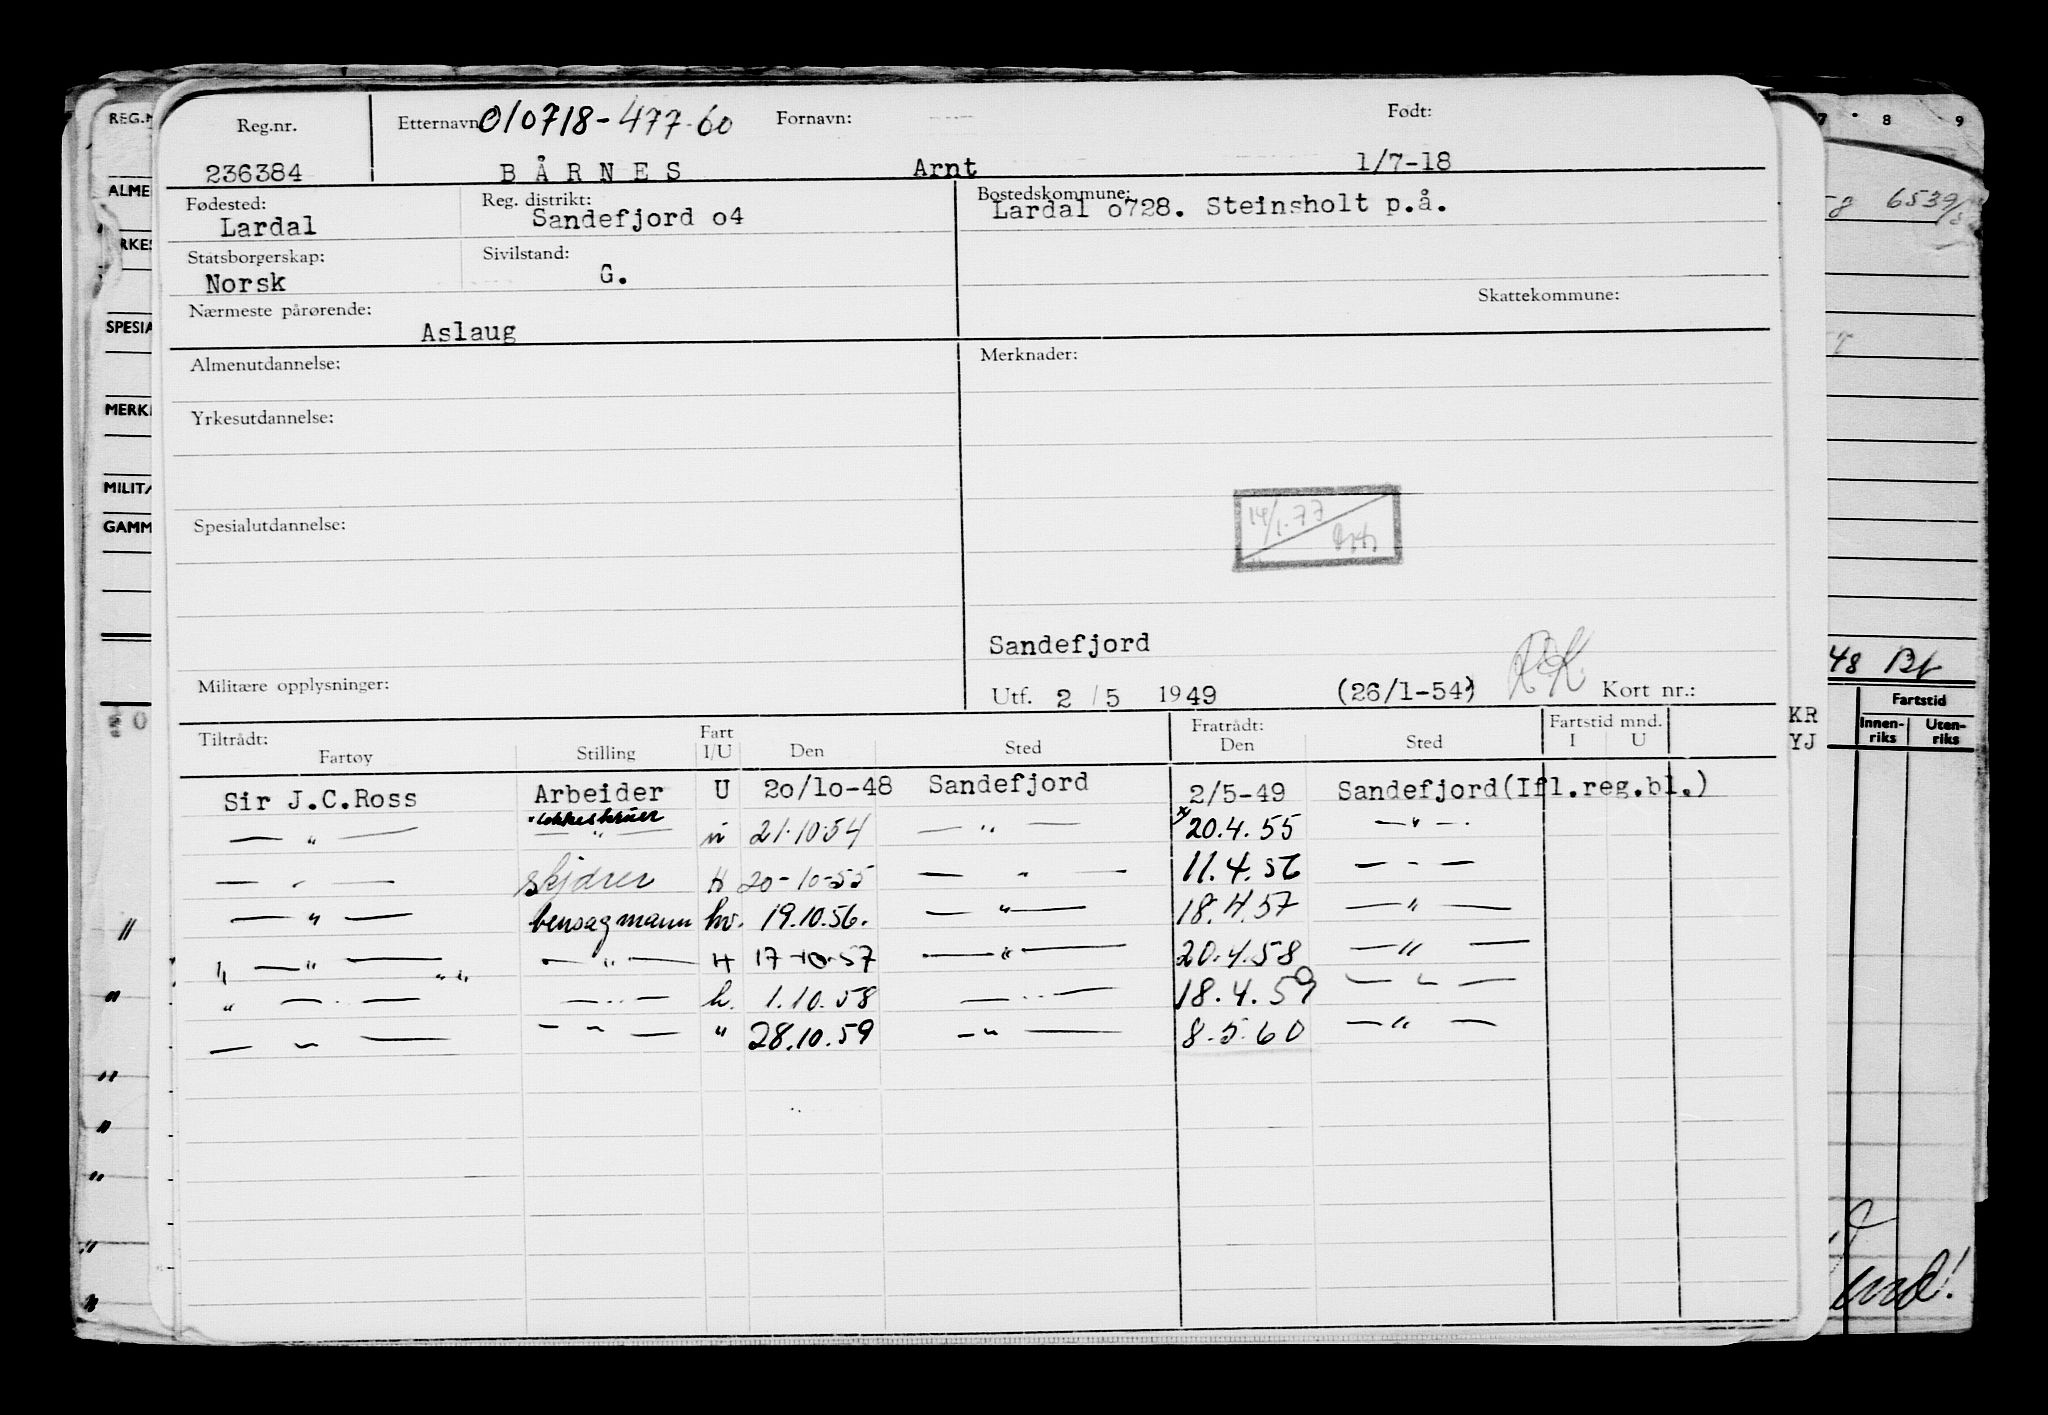 Reg.nr. Etternavn 010718-477-60 Fornavn: Født:
236384 BÅRNES Arnt 1/7-18
Fødested: Reg. distrikt: Bostedskommune:
Lardal Sandefjord o4 Lardal o728. Steinsholt p.å.
Statsborgerskap: Sivilstand:
Norsk G.
Nærmeste pårørende: Skattekommune:
Aslaug
Almenutdannelse: Merknader:
Yrkesutdannelse:
14/1.77
Spesialutdannelse:
Sandefjord
Militære opplysninger: Utf. 2 / 5 1949 (26/1-54) Kort nr.:
Tiltrådt: Fart Fratrådt: Fartstid mnd.
Fartøy Stilling I/U Den Sted Den Sted I U
Sir J.C.Ross Arbeider U 2o/1o-48 Sandefjord 2/5-49 Sandefjord(Ifl.reg.bl.)
— " — — " — 21.10.54 — " — 20.4.55 — " —
— " — skjærer H 20-10-55 — " — 11.4.56 — " —
— " — bensagmann hv. 19.10.56. — " — 18.4.57 — " —
— " — — " — H 17-10-57 — " — 20.4.58 — " —
" — " — — " — h. 1.10.58 — " — 18.4.59 — " —
— " — — " — " 28.10.59 — " — 8.5.60 — " —
REG.N
ALME
RKES
SPESIA
MERK
MILIT
GAMM
7 8 9
6539
48 Bf
Fartstid
Innenriks Utenriks
KR
YJ